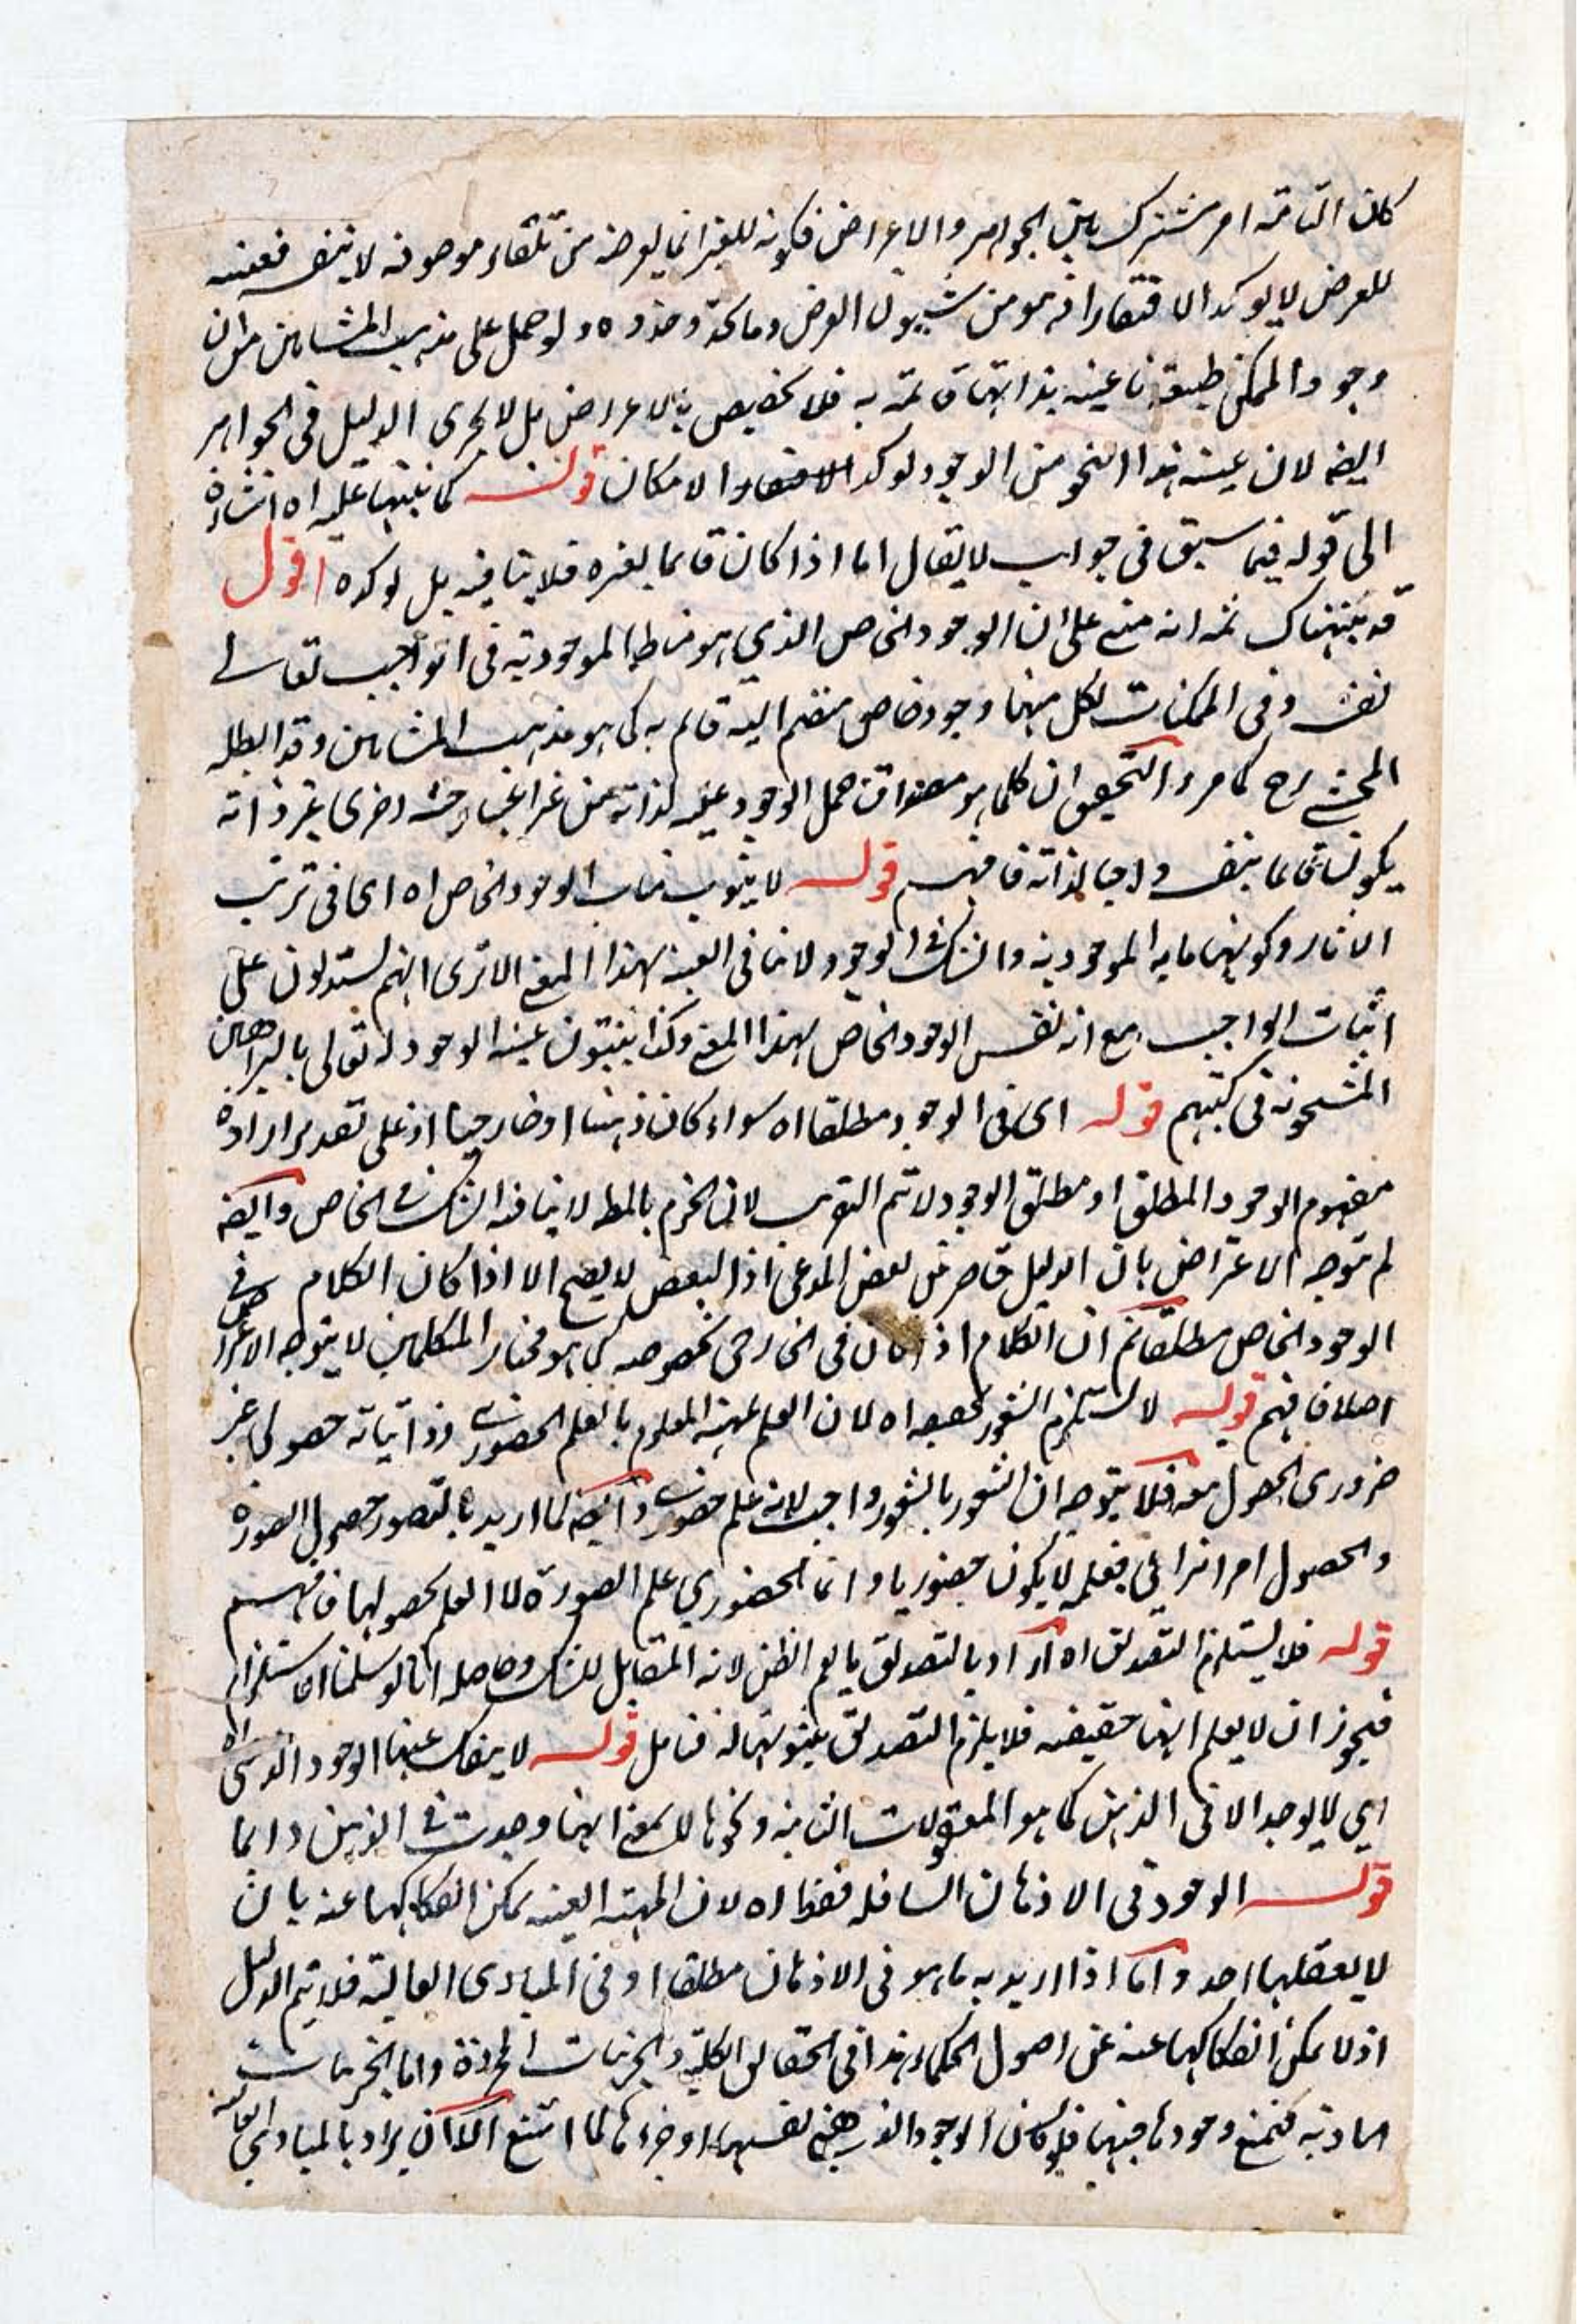 كان الناعتية امر مشترك بين الجواهر والاعراض فكونه للغير انما يعرضه من تلقاء موصوفه لا بنفسه فعينيته
للعرض لا يوكد الافتقار اذ هو من شيون العرض وما يحذو حذوه ولو حمل على مذهب المشائين من ان
وجود الممكن طبيعة ناعتية بذاتها قائمة به فلا تخصيص بالاعراض بل لا يجرى الدليل فى الجواهر
ايضا لان عينية هذا النحو من الوجود يوكد الافتقار والامكان قوله كما نبهنا عليه اه اشارة
الى قوله فيما سبق فى جواب لا يقال اما اذا كان قائما بغيره فلا ينافيه بل يوكده اقول
قد نبهناك ثمه انه مبنى على ان الوجود الخاص الذي هو مناط الموجودية فى الواجب تعالى
نفسه وفى الممكنات لكل منها وجود خاص منضم اليه قائم به كما هو مذهب المشائين وقد ابطله
المحشى رح كما مر والتحقيق ان كلما هو مصداق حمل الوجود عليه لذاته من غير اعتبار حيثية اخرى غير ذاته
يكون قائما بنفسه واجبا لذاته فافهم قوله لا ينوب مناب الوجود الخاص اه اى فى ترتب
الاثار وكونها ما به الموجودية والشك فى الوجود لا ينافى العينية بهذا المعنى الا ترى انهم يستدلون على
اثبات الواجب مع انه نفس الوجود الخاص بهذا المعنى وكذا يثبتون عينية الوجود له تعالى بالبراهين
المشحونة فى كتبهم قوله اى فى الوجود مطلقا اه سواء كان ذهنيا او خارجيا اذ على تقدير ارادة
مفهوم الوجود المطلق او مطلق الوجود لا يتم التقريب لان الجزم بالمطلق لا ينافيه الشك فى الخاص وايضا
لم يتوجه الاعتراض بان الدليل قاصر من بعض المدعى اذ البعض لا يصح الا اذا كان الكلام فى
الوجود الخاص مطلقا ثم ان الكلام اذا كان فى الخارجى بخصوصه كما هو مختار المتكلمين لا يتوجه الاعتراض
اصلا فافهم قوله لا يستلزم الشعور بحصوله اه لان العلم بهيئة المعلوم بالعلم الحضورى وذاتياته حصولى غير
ضرورى الحصول معه فلا يتوجه ان الشعور بالشعور واجب لانه علم حضورى وايضا لما اريد بالتصور حصول الصورة
والحصول امر انتزاعى فعلمه لا يكون حضوريا وانما الحضوري علم الصورة لا العلم بحصولها فافهم
قوله فلا يستلزم التصديق اه اراد بالتصديق ما يعم الظن لانه المقابل للشك وحاصله انا لو سلمنا الاستلزام
فيجوز ان لا يعلم انها حقيقته فلا يلزم التصديق بثبوتها له فتامل قوله لا ينفك عنها الوجود الذهنى اه
اي لا يوجد الا فى الذهن كما هو المعقولات الثانية ونحوها لا بمعنى انها وجدت فى الذهن دائما
قوله الوجود فى الاذهان السافلة فقط اه لان المهية العينية يمكن انفكاكها عنه بان
لا يعقلها احد واما اذا اريد به ما هو فى الاذهان مطلقا او فى المبادى العالية فلا يتم الدليل
اذ لا يمكن انفكاكها عنه على اصول الحكماء هذا فى الحقائق الكلية والجزئيات المجردة واما الجزئيات
المادية فيمتنع وجودها فيها فلو كان الوجود الذهنى نفسها او جزءها لما امتنع الا ان يراد بالمبادي العالية